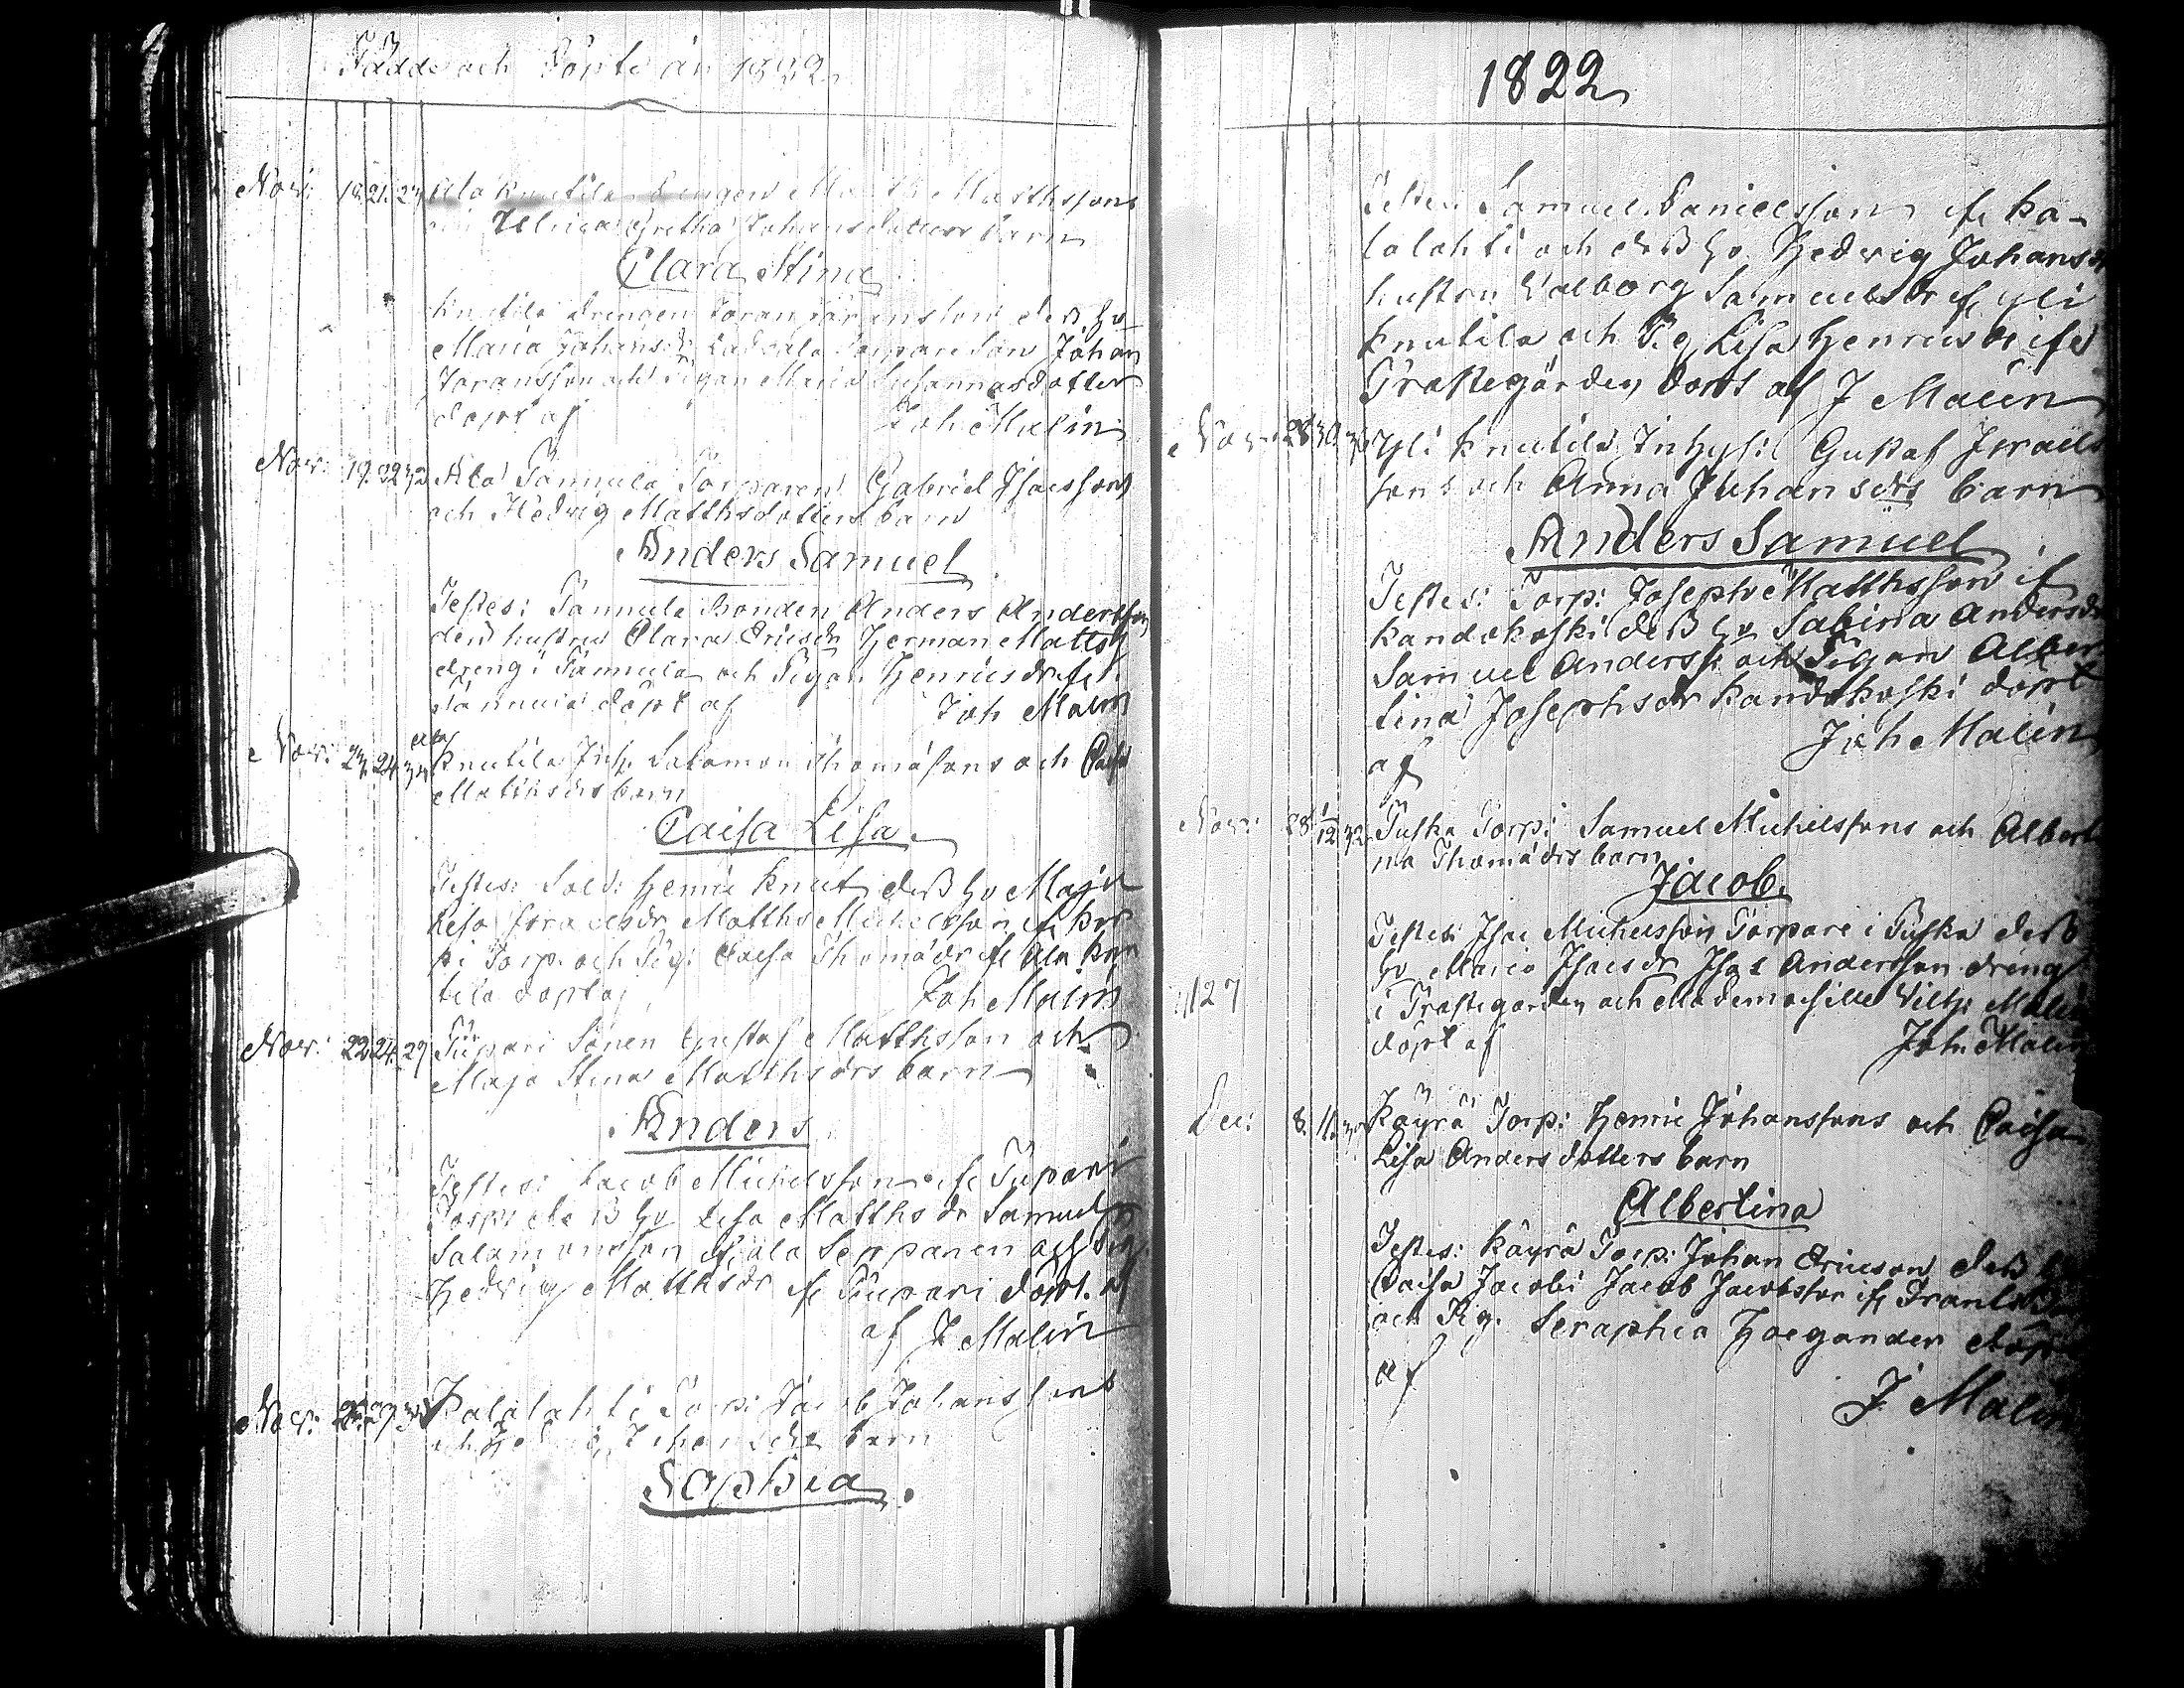 Födde och Döpte år 1822
Nov: 19. 21. 27 Ala Knutila Drengen Matthssons
Ulrica Gretha Johansdotters barn
Clara Stina
Knutila Drengen Göran dess ho
Maria Johansdr Torpare Son Johan
Göransson och Pigan Maria Susannasdotter
döpt af Joh Malin
Nov: 19. 22 32 Ala Tannula Torparen Gabriel Isacssons
och Hedvig Matthsdotters barn
Anders Samuel
Testes: Tannula bonden Anders Andersson
dess hustru Clara Ericsdr Herman Mattss
dreng i Tannula och Pigan Henricsdr if
Tannula döpt af Joh Malin
Nov: 23. 24 Ala
Knutila Inh. Salomon Thomasons och Caisa
Matthsdrs barn
Caisa Lisa
Testes: Sold: Henric Knut dess ho Maja
Lisa Israelsdr Matths Michelsson if
Torp. och Pig: Caisa Thomasdr if Ala Knu
tila döpt af Joh Malin
Nov: 22 24. 29 Tupari Sonen Gustaf Matthsson och
Maja Stina Matthsdrs barn
Anders
Testes: Jacob Michelsson if Tupari
Torp: dess ho Lisa Matthsdr Samuel
Salomonsson if Ala Seppänen och Pig.
Hedvig Matthsdr if Tupari döpt. af
af J Malin
Nov: Kalalahti Torp: Jacob Johanssons
och Hedvig Johansdrs barn
Sophia
1822
Testes: Samuel Danielsson if Ka-
lalahti och dess ho Hedvig Johansdr
hustru Valborg Samuelsdr if Yli
Knutila och Pig Lisa Henricsdr if
Prostegården döpt af J Malin
Nov: 28 30 Yli Knutila Inhysi: Gustaf Israels
sons och Anna Juhansdrs barn
Anders Samuel
Testes: Torp: Joseph Matthsson if
Kandokoski dess ho Sabina Andersdr
Samuel Anderss: och Pigan Alber
tina Josephsdr Kandokoski döpt
af Joh Malin
Nov: 28 1/12 32 Puska Torp: Samuel Michelssons och Alberti
na Thomasdrs barn
Jacob.
Testes: Isac Michelsson Torpare i Puska dess
ho Maria Isacsdr Isac Andersson dreng
i Prostegården och Mademoiselle Vilh: Malin
döpt af Joh. Malin
127
Dec: 8. 11. Käyrä Torp: Henric Johanssons och Caisa
Lisa Andersdotters barn
Albertina
Testes: Käyrä Torp: Johan Ericsson dess ho
Caisa Jacobs: Jacob Jacobsson if
och Pig. Seraphia Hoegander döpt
af
J Malin